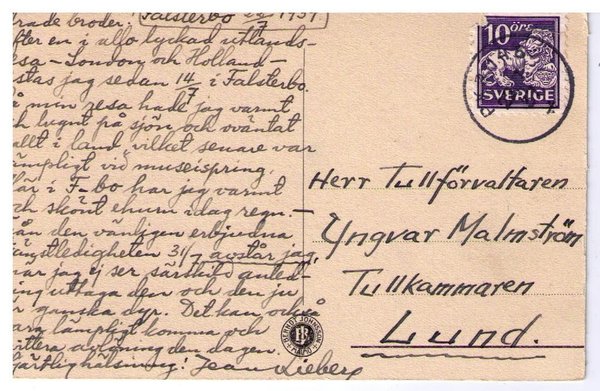 Falsterbo 26/7 1931
rade broder!
fter en i allo lyckad utlands-
sa – London och Holland –
stas jag sedan 14/7 i Falsterbo.
min resa hade jag varmt
h lugnt på sjön och oväntat
allt i land, vilket senare var
ämpligt vid museispring.
är i F-bo har jag varmt
ch skönt ehuru i dag regn. –
ån den vänligen erbjudna
änstledigheten 31/7 avstår jag,
ar jag ej ser särskild anled-
ing uttaga den och den ju
ganska dyr. Det kan också
ara lämpligt komma och
ittera avlöning den dagen.
järtlig hälsning. Jean Lieberg
10 ÖRE
SVERIGE
Herr Tullförvaltaren
Yngvar Malmström
Tullkammaren
Lund.
BERNDT JOHNSSON
MALMÖ